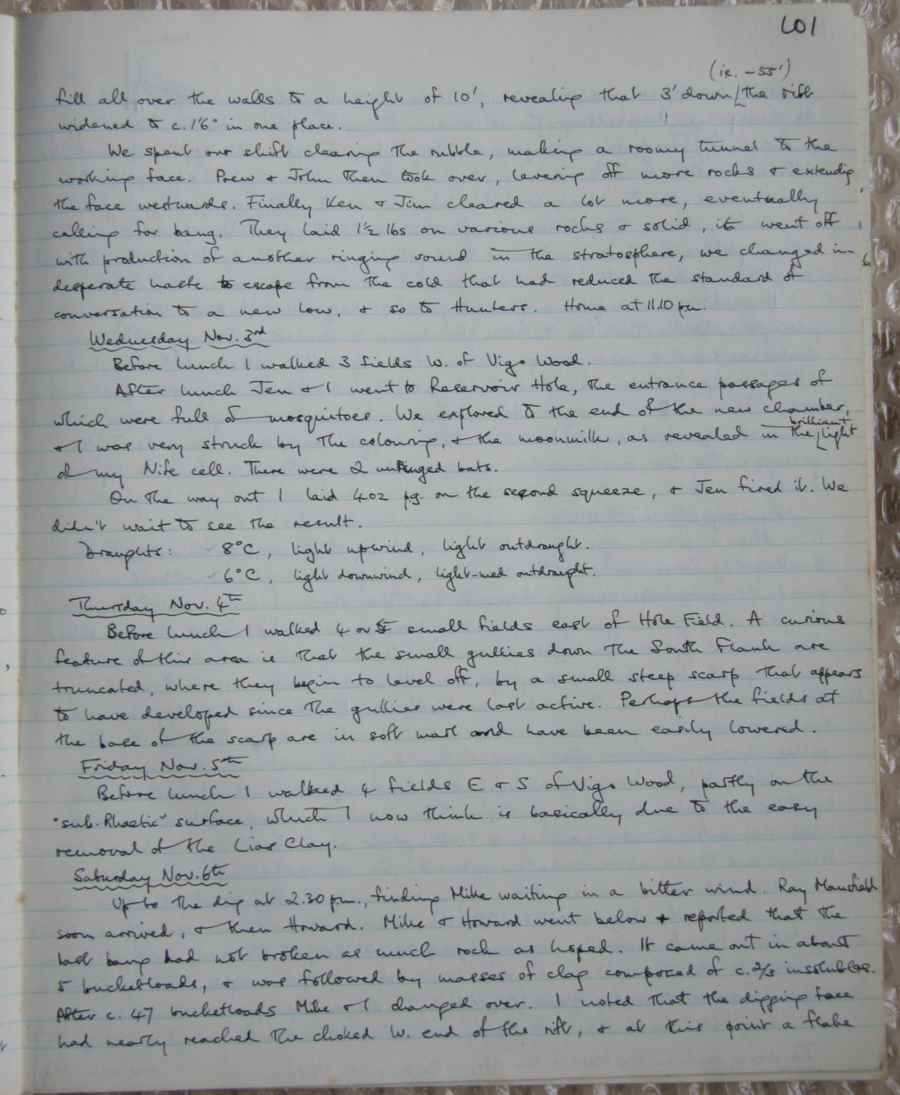 601
(ie. -55')
fill all over the walls to a height of 10', revealing that 3' down the rift
widened to c.1'6" in one place.
We spent our shift clearing the rubble, making a roomy tunnel to the
working face. Prew & John then took over, levering off more rocks & extending
the face westwards. Finally Ken & Jim cleared a lot more, eventually
calling for bang. They laid 1½ lbs on various rocks & solid, it went off
with production of another ringing sound in the stratosphere, we changed in
desperate haste to escape from the cold that had reduced the standard of
conversation to a new low, & so to Hunters. Home at 11.10 pm.
Wednesday Nov. 3rd
Before lunch I walked 3 fields W. of Vigo Wood.
After lunch Jen & I went to Reservoir Hole, the entrance passages of
which were full of mosquitoes. We explored to the end of the new chamber,
& I was very struck by the colouring, & the moonmilk, as revealed in the brilliant light
of my Nife cell. There were 2 unringed bats.
On the way out I laid 4oz pg. on the second squeeze, & Jen fired it. We
didn't wait to see the result.
Draughts: 8°C, light upwind, light outdraught.
6°C, light downwind, light-med outdraught.
Thursday Nov. 4th
Before lunch I walked 4 or 5 small fields east of Hole Field. A curious
feature of this area is that the small gullies down the South Flank are
truncated, where they begin to level off, by a small steep scarp that appears
to have developed since the gullies were last active. Perhaps the fields at
the base of the scarp are in soft marl and have been easily lowered.
Friday Nov. 5th
Before lunch I walked 4 fields E & S of Vigo Wood, partly on the
"sub-Rhaetic" surface, which I now think is basically due to the easy
removal of the Lias Clay.
Saturday Nov. 6th
Up to the dig at 2.30 pm., finding Mike waiting in a bitter wind. Ray Mansfield
soon arrived, & then Howard. Mike & Howard went below & reported that the
last bang had not broken as much rock as hoped. It came out in about
5 bucketloads, & was followed by masses of clay composed of c.⅔ insolubles.
After c. 47 bucketloads Mike & I changed over. I noted that the digging face
had nearly reached the choked W. end of the rift, & at this point a flake